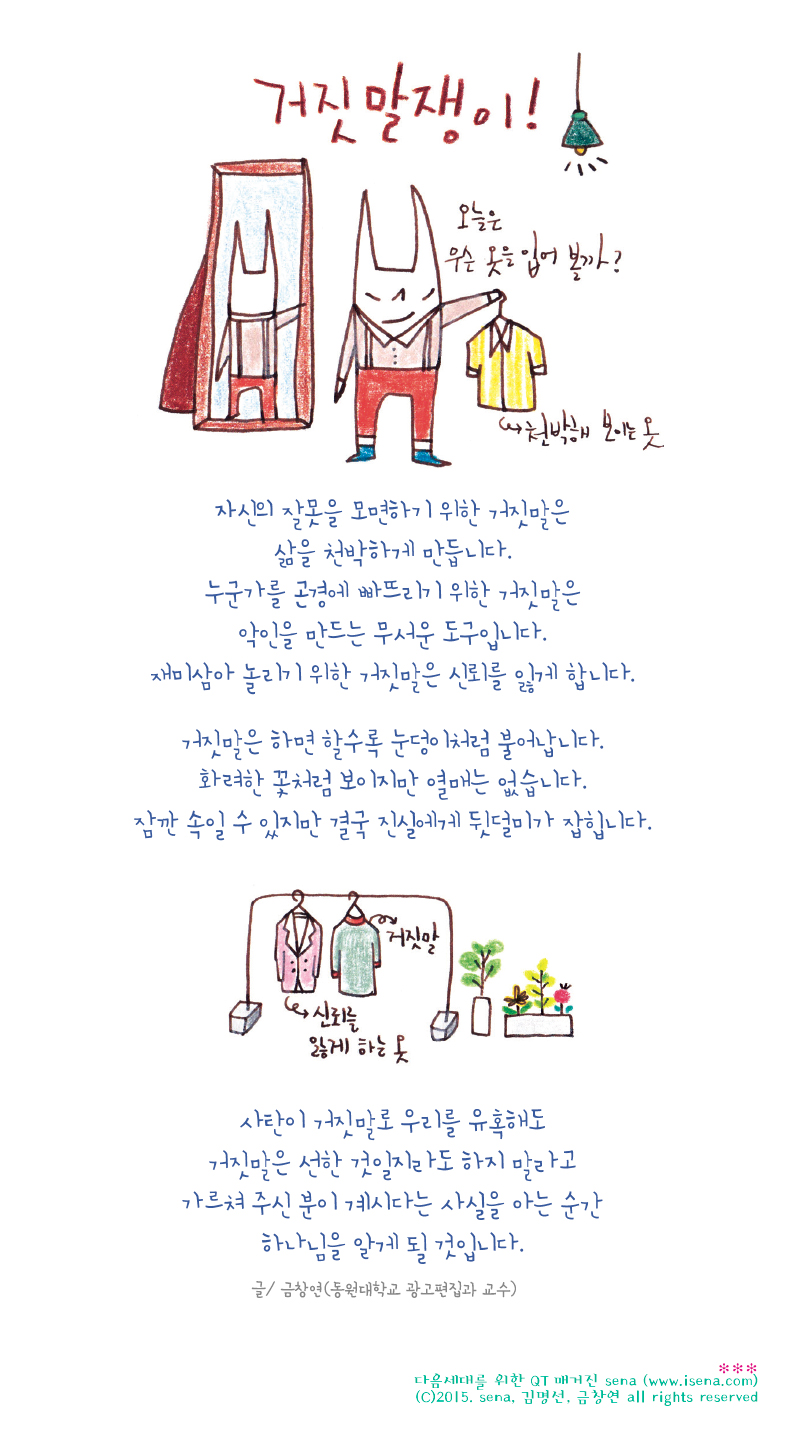 거짓말쟁이!
오늘은
무슨 옷을 입어 볼까?
천박해 보이는 옷
자신의 잘못을 모면하기 위한 거짓말은
삶을 천박하게 만듭니다.
누군가를 곤경에 빠뜨리기 위한 거짓말은
악인을 만드는 무서운 도구입니다.
재미삼아 놀리기 위한 거짓말은 신뢰를 잃게 합니다.
거짓말은 하면 할수록 눈덩이처럼 불어납니다.
화려한 꽃처럼 보이지만 열매는 없습니다.
잠깐 속일 수 있지만 결국 진실에게 뒷덜미가 잡힙니다.
거짓말
신뢰를
잃게 하는 옷
사탄이 거짓말로 우리를 유혹해도
거짓말은 선한 것일지라도 하지 말라고
가르쳐 주신 분이 계시다는 사실을 아는 순간
하나님을 알게 될 것입니다.
글/ 금창연(동원대학교 광고편집과 교수)
***
다음세대를 위한 QT 매거진 sena (www.isena.com)
(C)2015. sena, 김명선, 금창연 all rights reserved